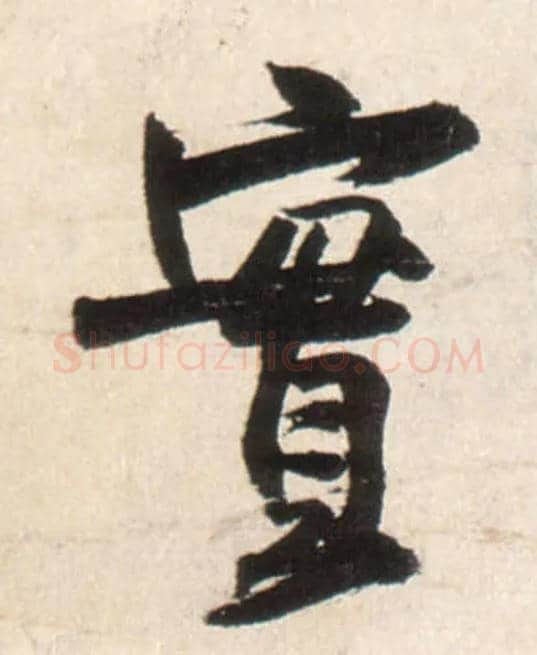 實
Shufaziliao.COM